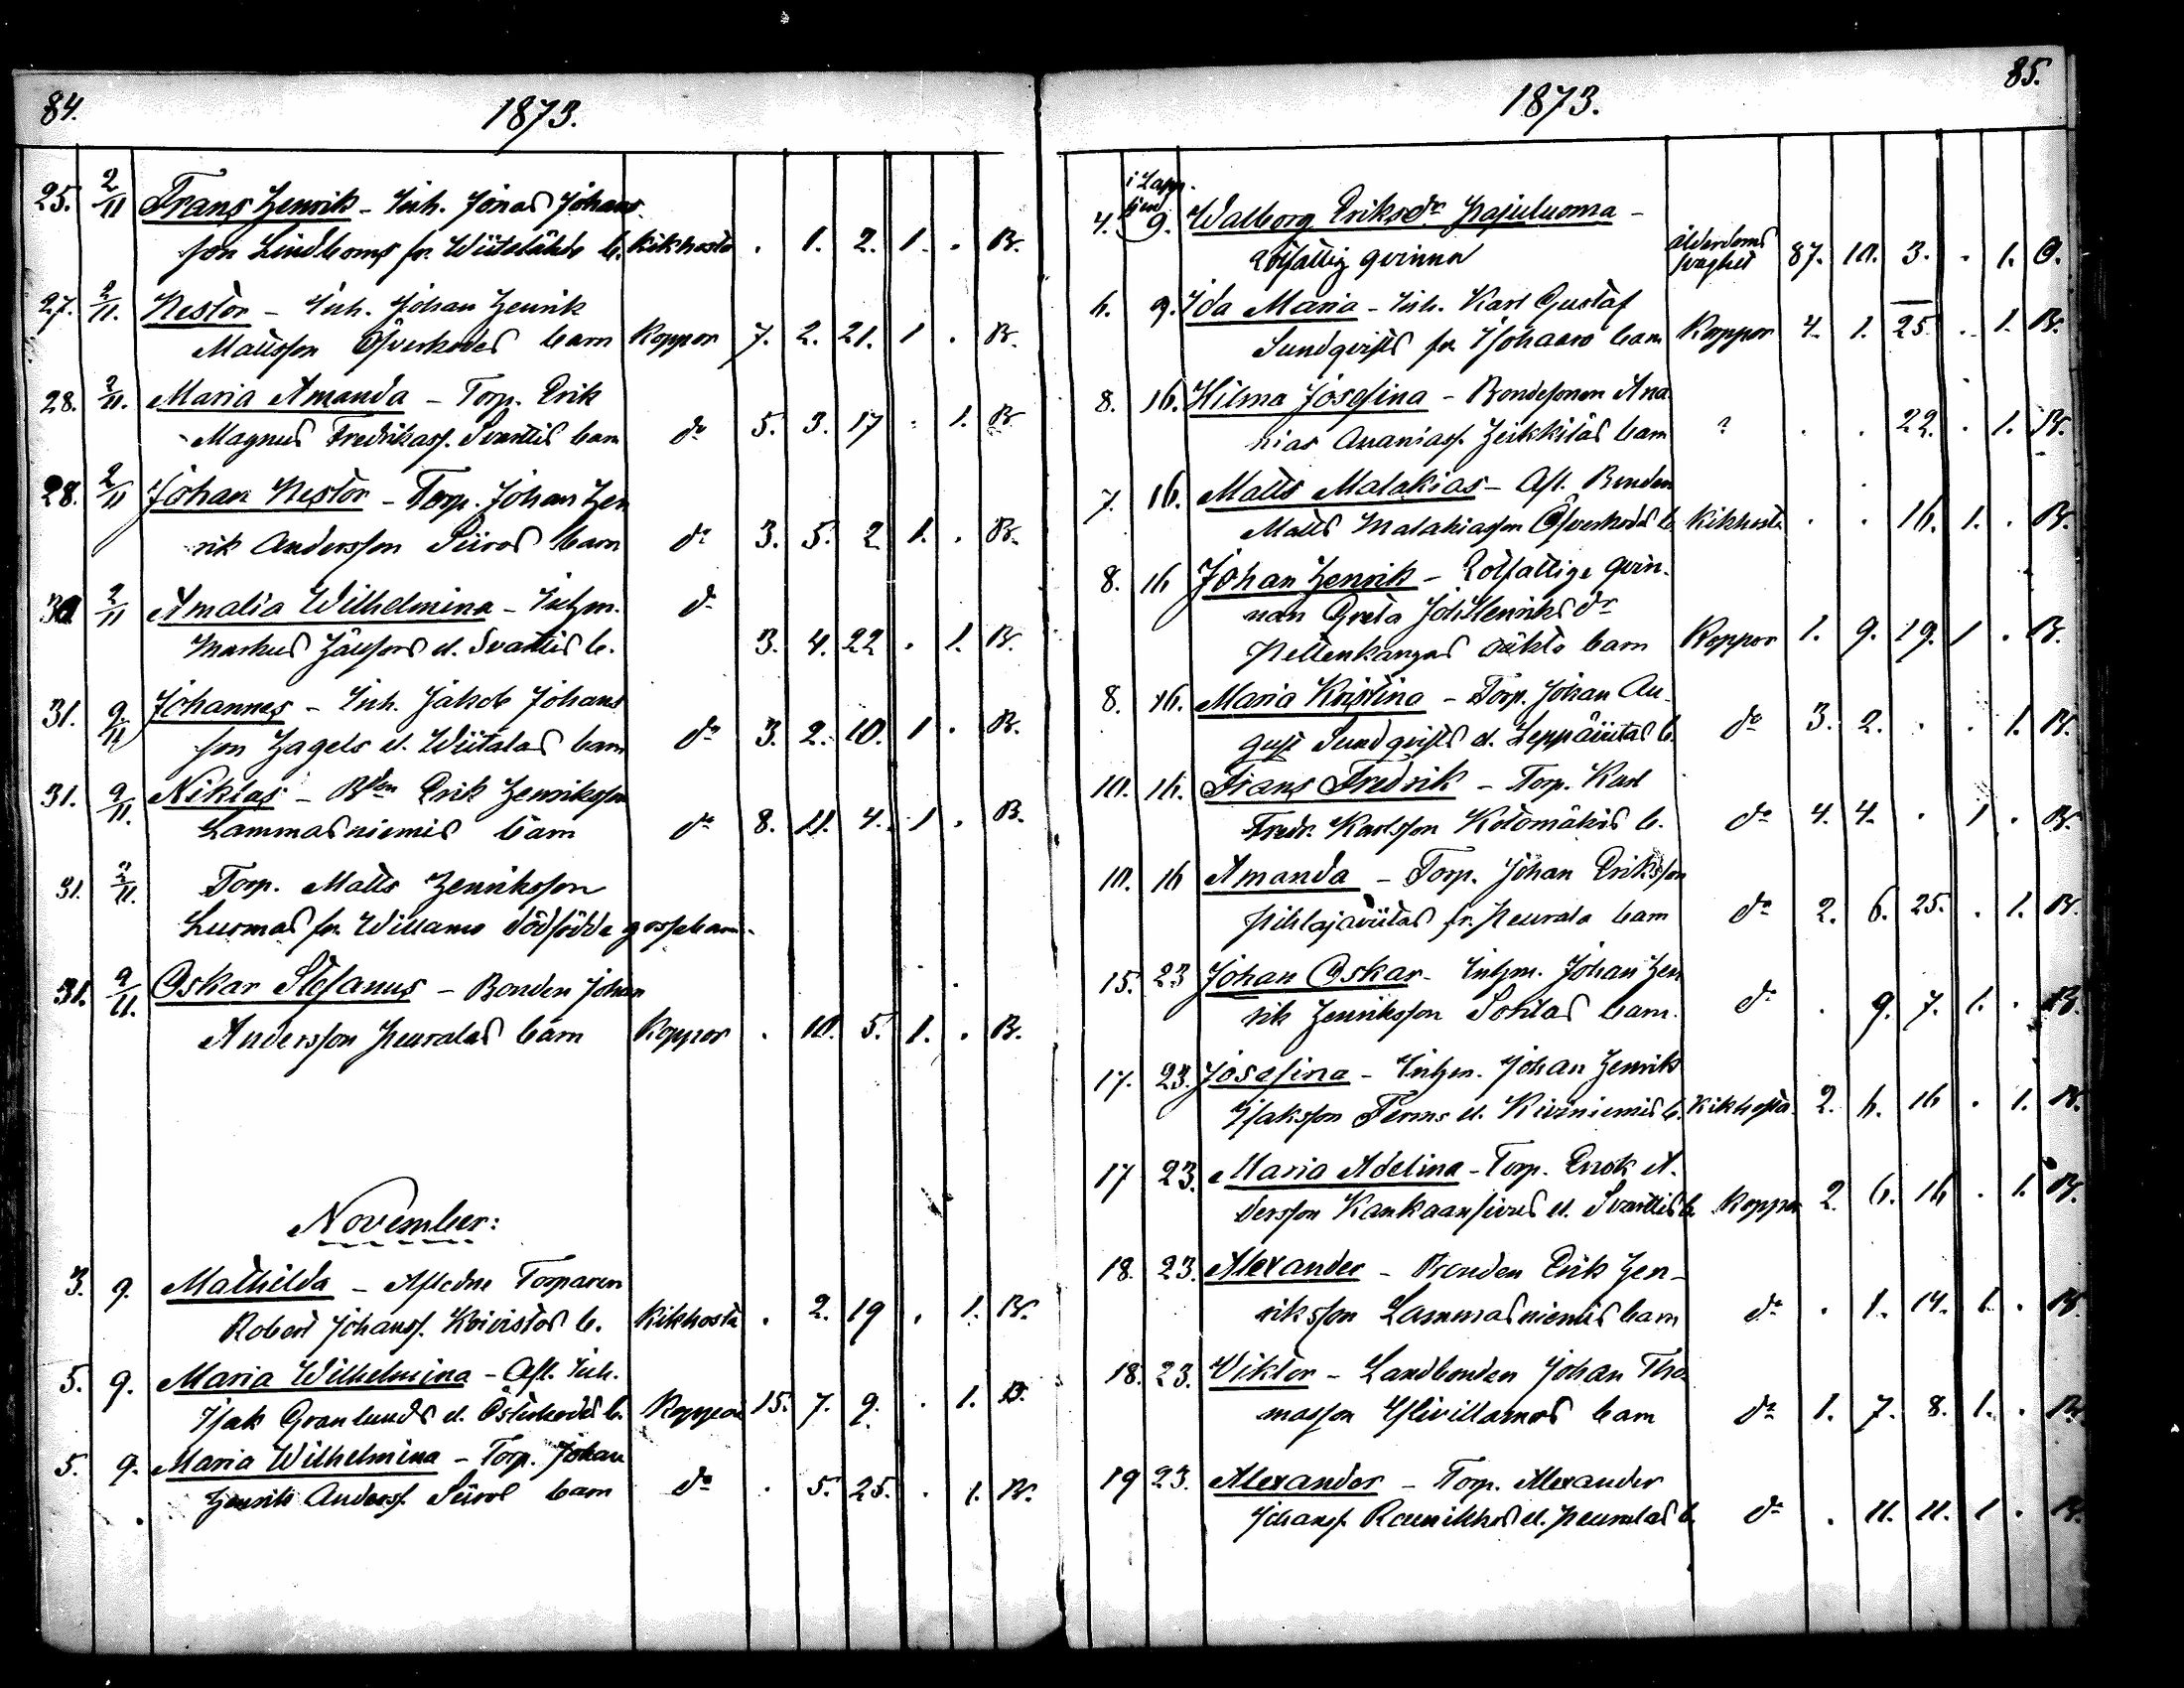 84.
1873.
25. 2/11 Frans Henrik - Inh. Jonas Johans
son Lindboms fr. Wiitelähde b. kikhosta . 1. 2. 1. . B.
27. 2/11. Nestor - Inh. Johan Henrik
Mattsson Öfverkodes barn Koppor 7. 2. 21. 1 . B.
28. 2/11. Maria Amanda - Torp. Erik
Magnus Fredrikass. Svartis barn do 5. 3. 17 . 1. B
28. 2/11 Johan Nestor - Torp. Johan Hen
rik Andersson Siiros barn do 3. 5. 2 1. . B.
30 2/11 Amalia Wilhelmina - Inhm. do
Markus d. Svartis b. 3. 4. 22 . 1. B.
31. 9/11 Johannes - Inh. Jakob Johans
son Hagels d. Wiitalas barn do 3. 2. 10. 1 . B.
31. 9/11. Niklas - Bden Erik Henriksson
Lammasniemis barn do 8. 11. 4. 1 . B.
31. 2/11. Torp. Matts Henriksson
Luomas fr. Willamo dödfödde gossebarn.
31. 9/11. Oskar Stefanus - Bonden Johan
Andersson Heuralas barn Koppor . 10. 5. 1. . B.
November:
3. 9. Mathilda - Afledne Torparen
Robert Johanss. Koivistos b. Kikhosta . 2. 19 . 1. B.
5. 9. Maria Wilhelmina - Afl. Inh.
Isak Granlunds d. b. Koppor 15. 7. 9. . 1. B.
5. 9. Maria Wilhelmina - Torp. Johan
Henrik Anderss. Siiros barn do . 5. 25. . 1. B.
85.
1873.
i Lapp.
4. 9. Walborg Eriksdr Hajuluoma -
Rotfattig qvinna ålderdoms svaghet 87. 10. 3. . 1. O.
6. 9. Ida Maria - Inh. Karl Gustaf
Sundqvists fr. barn Koppor 4. 1. 25. . 1. B.
8. 16. Hilma Josefina - Bondesonen Ana
nias Ananiass. Heikkiläs barn ? . . 22. . 1. B.
7. 16. Matts Malakias - Afl. Bonden
Matts Malakiasson Öfverkodes b. Kikhosta . . 16. 1. . B.
8. 16 Johan Henrik - Rotfattige qvin-
nan Greta Joh:Henriksdr
Nettenkangas oäkta barn Koppor 1. 9. 19. 1 . B.
8. 16. Maria Kristina - Torp. Johan Au-
gust Sundqvists d. b. do 3. 2. . . 1. B.
10. 16. Frans Fredrik - Torp. Karl
Fredr. Karlsson Kotomäkis b. do 4. 4. . 1 . B.
10. 16 Amanda - Torp. Johan Eriksson
Pihlajaviitas fr. Heurala barn do 2. 6. 25. . 1. B.
15. 23 Johan Oskar - Inhm. Johan Hen
rik Henriksson barn. do . 9. 7. 1. . B.
17. 23. Josefina - Inhm. Johan Henrik
Isaksson d. Kiviniemis b. Kikhosta 2. 6. 16 . 1. B.
17 23. Maria Adelina - Torp. Erik A.
dersson d. Svartis b. Koppor 2. 6. 16 . 1. B.
18. 23. Alexander - Bonden Erik Hen-
riksson Lammasniemis barn do . 1. 14. 1. . B.
18. 23. Viktor - Landbonden Johan Tho
masson Ylivillamos barn do 1. 7. 8. 1. . B.
19 23. Alexander - Torp. Alexander
Johanss. d. Heuralas b. do . 11. 11. 1 . B.